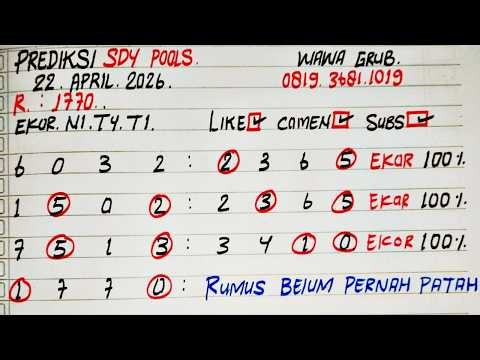 PREDIKSI SDY POOLS. WAWA GRUB.
22. APRIL. 2026. 0819.3681.1019
R. : 1770..
EKOR. N1. T4. T1. LIKE COMEN SUBS
6 0 3 2 : 2 3 6 5 EKOR 100%.
1 5 0 2 : 2 3 6 5 EKOR 100%.
7 5 1 3 : 3 4 1 0 EKOR 100%.
1 7 7 0 : RUMUS BELUM PERNAH PATAH